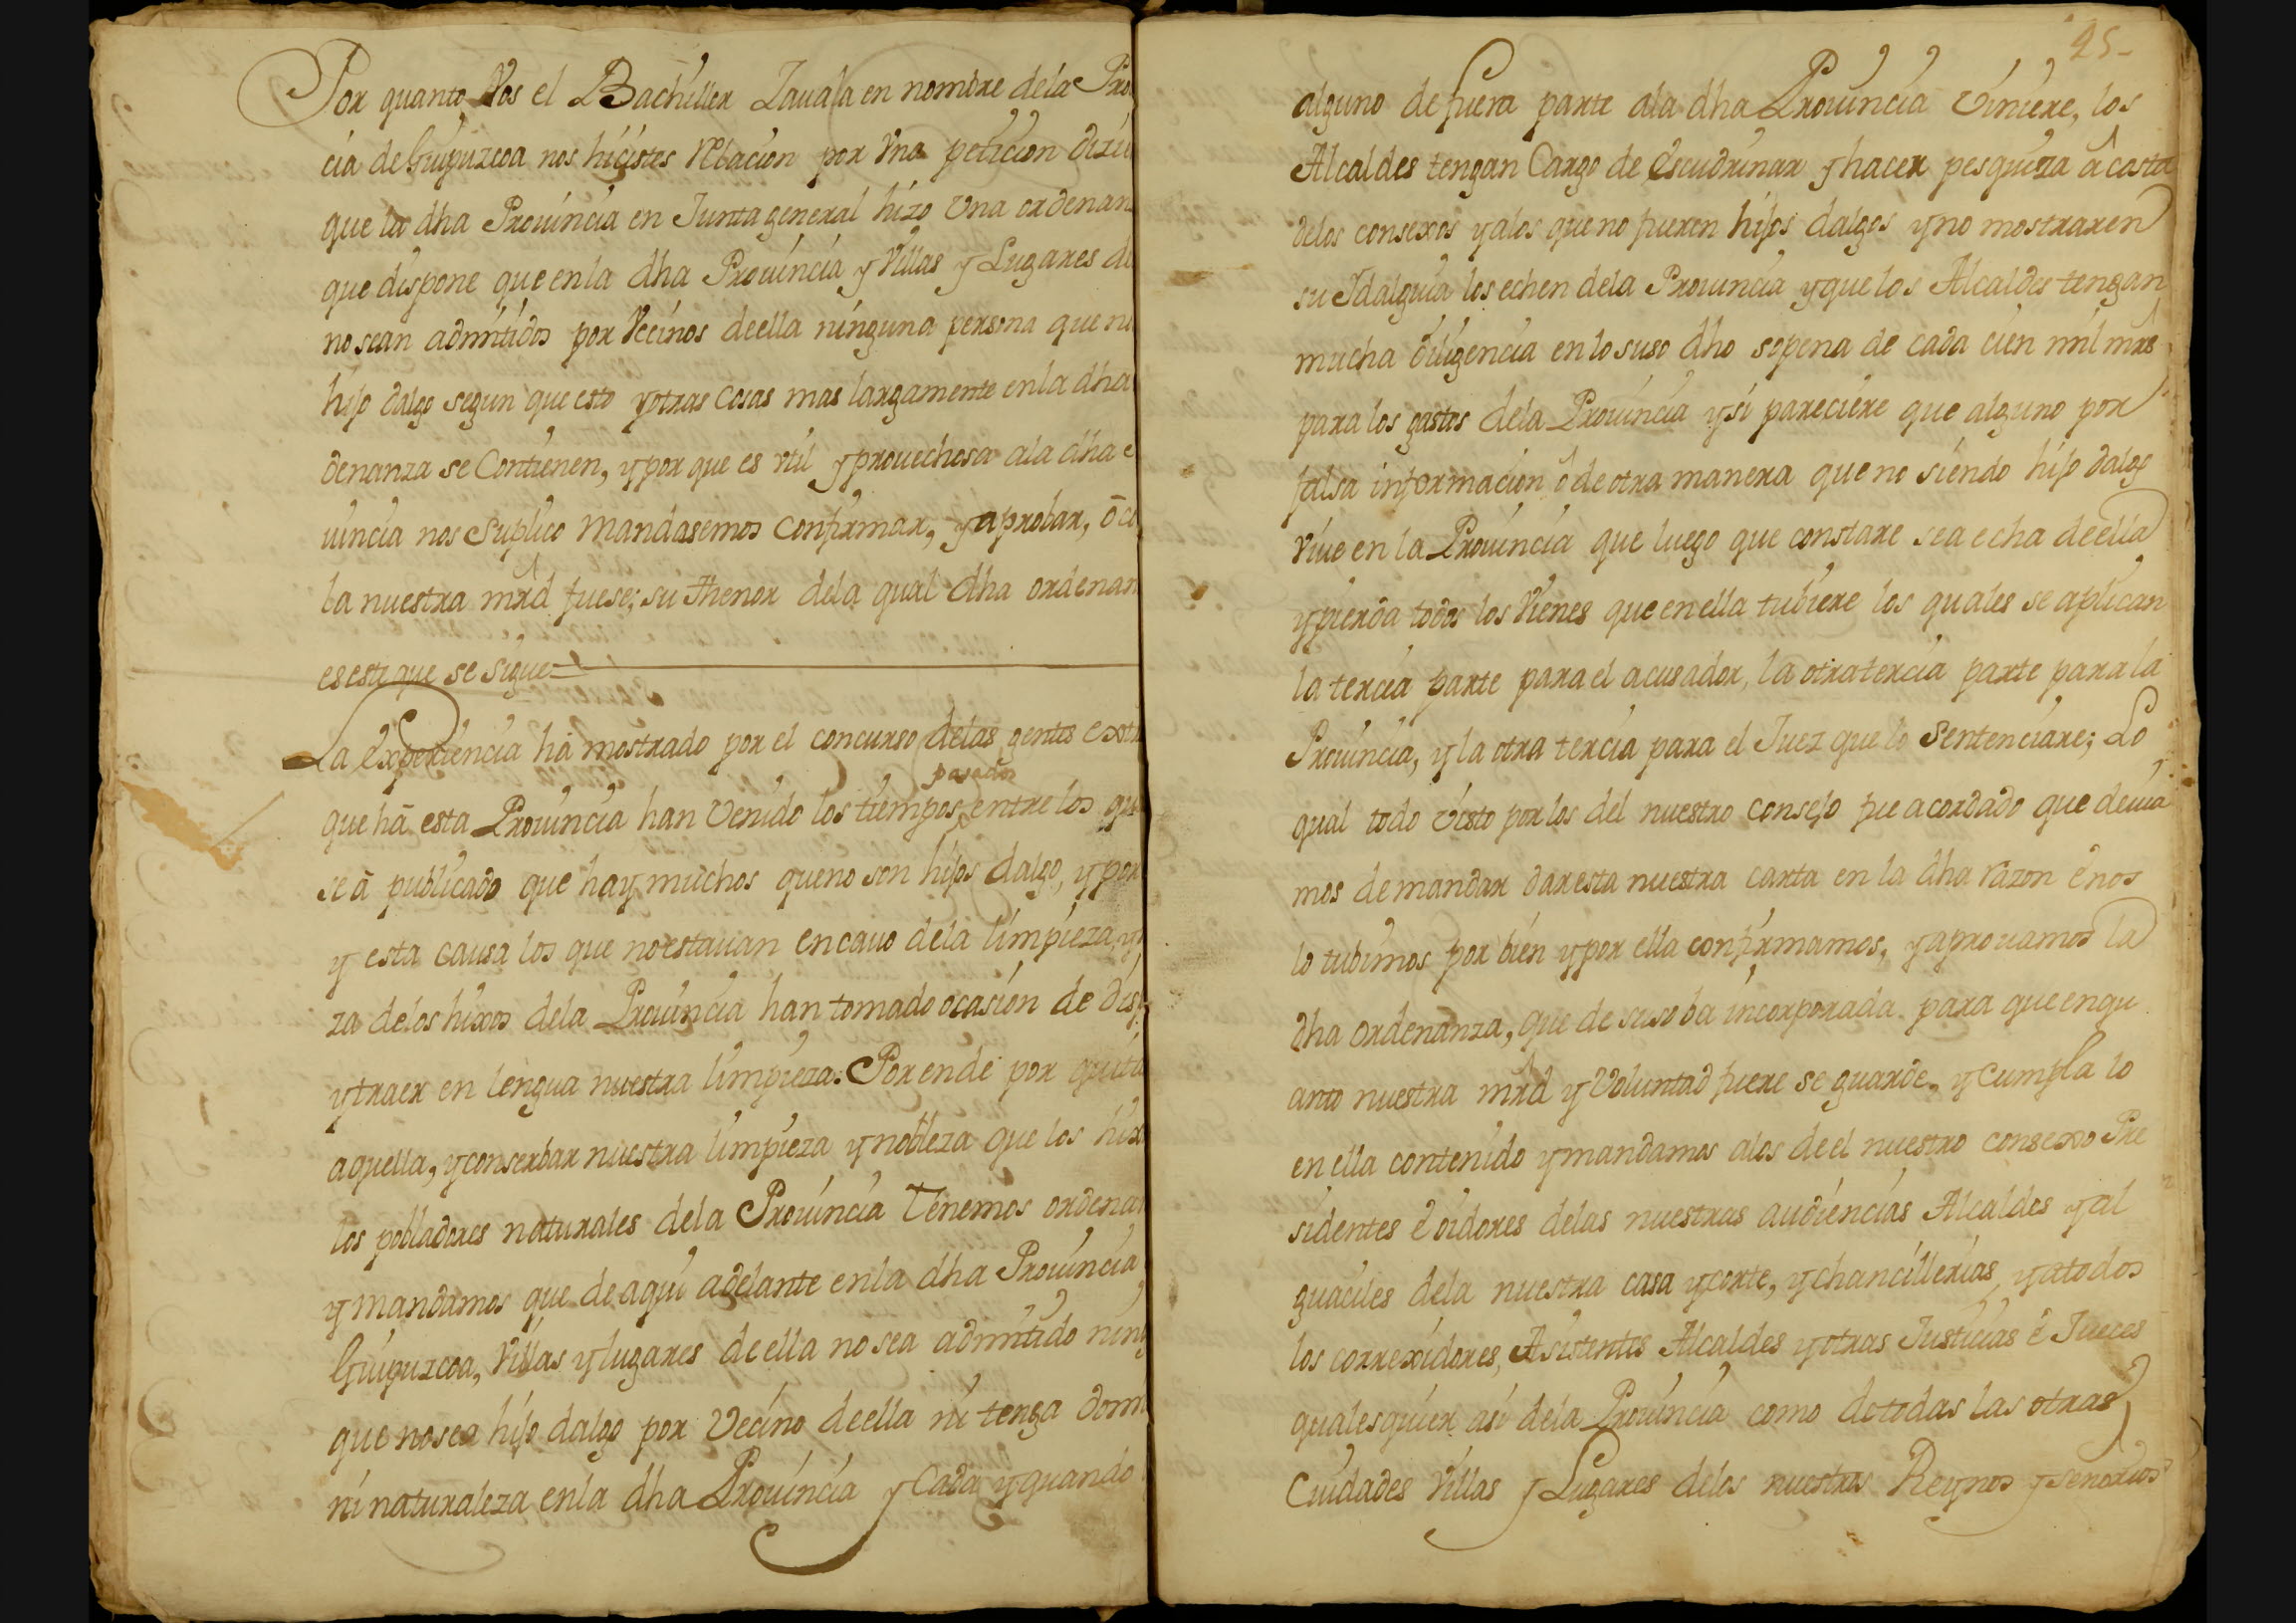 Por quanto Vos el Bachiller Zauala en nombre dela Pro
cia de Guipuzcoa nos hicistes relacion por Vna peticion dizi
que la dha Prouincia en Junta general hizo Vna ordenan
que dispone que enla dha Prouincia y Villas y Lugares de
no sean admitidos por Vecinos deella ninguna persona que n
hijo dalgo segun que esto yotras Cosas mas largamente enla dha
denanza se Contienen, ypor que es vtil yprouechosa ala dha
uincia nos Suplico mandasemos confirmar, yaprobar, ô co
la nuestra mrd fuese; su Thenor dela qual dha ordenan
es este que se sigue
La Experiencia ha mostrado por el concurso delas gentes extr
pasados
que hã esta Prouincia han Venido los tiempos entre los qu
se â publicado que hay muchos queno son hijos dalgo, ypor
y esta causa los que noestauan encauo dela limpieza y
za delos hixos dela Prouincia han tomado ocasion de dis
ytraer en lengua nuestra limpieza. Por ende por quita
aquella, yconserbar nuestra limpieza ynobleza que los hix
los pobladores naturales dela Prouincia Tenemos ordena
ymandamos que deaqui adelante enla dha Prouincia
Guipuzcoa, Villas ylugares deella no sea admitido ning
que nosea hijo dalgo por Vecino deella ni tenga domi
ni naturaleza enla dha Prouincia y Cada yquando
25-
alguno de fuera parte ala dha Prouincia Viniere, los
Alcaldes tengan Cargo de escudrinar yhacer pesquiza â costa
delos consexos yalos queno fueren hijos dalgos yno mostraren
su Idalguia los echen dela Prouincia yque los Alcaldes tengan
mucha diligencia enlo suso dho sopena de cada cien mil mrs
para los gastos dela Prouincia ysi pareciere que alguno por
falsa informacion ô deotra manera que no siendo hijo dalgo
Viue en la Prouincia que luego que constare sea echa deella
ypierda todos los Vienes que enella tubiere los quales se aplican
la tercia parte para el acusador, la otra tercia parte para la
Prouincia, y la otra tercia para el Juez que lo Sentenciare; Lo
qual todo visto por los del nuestro consejo fue acordado que deuia
mos demandar dar esta nuestra carta en la dha razon ê nos
lo tubimos por bien ypor ella confirmamos, yaprouamos la
dha ordenanza, que de suso ba incorporada para que enqu
anto nuestra mrd y Voluntad fuere se guarde, y Cumpla lo
en ella contenido ymandamos alos deel nuestro consexo Pre
sidentes ê oidores delas nuestras audiencias Alcaldes yal
guaciles dela nuestra casa ycorte, ychancillerias, yatodos
los correxidores, Asistentes Alcaldes yotras Justicias ê Jueces
qualesquier asi dela Prouincia como detodas las otras
Ciudades Villas y Lugares delos nuestros Reynos y señorios